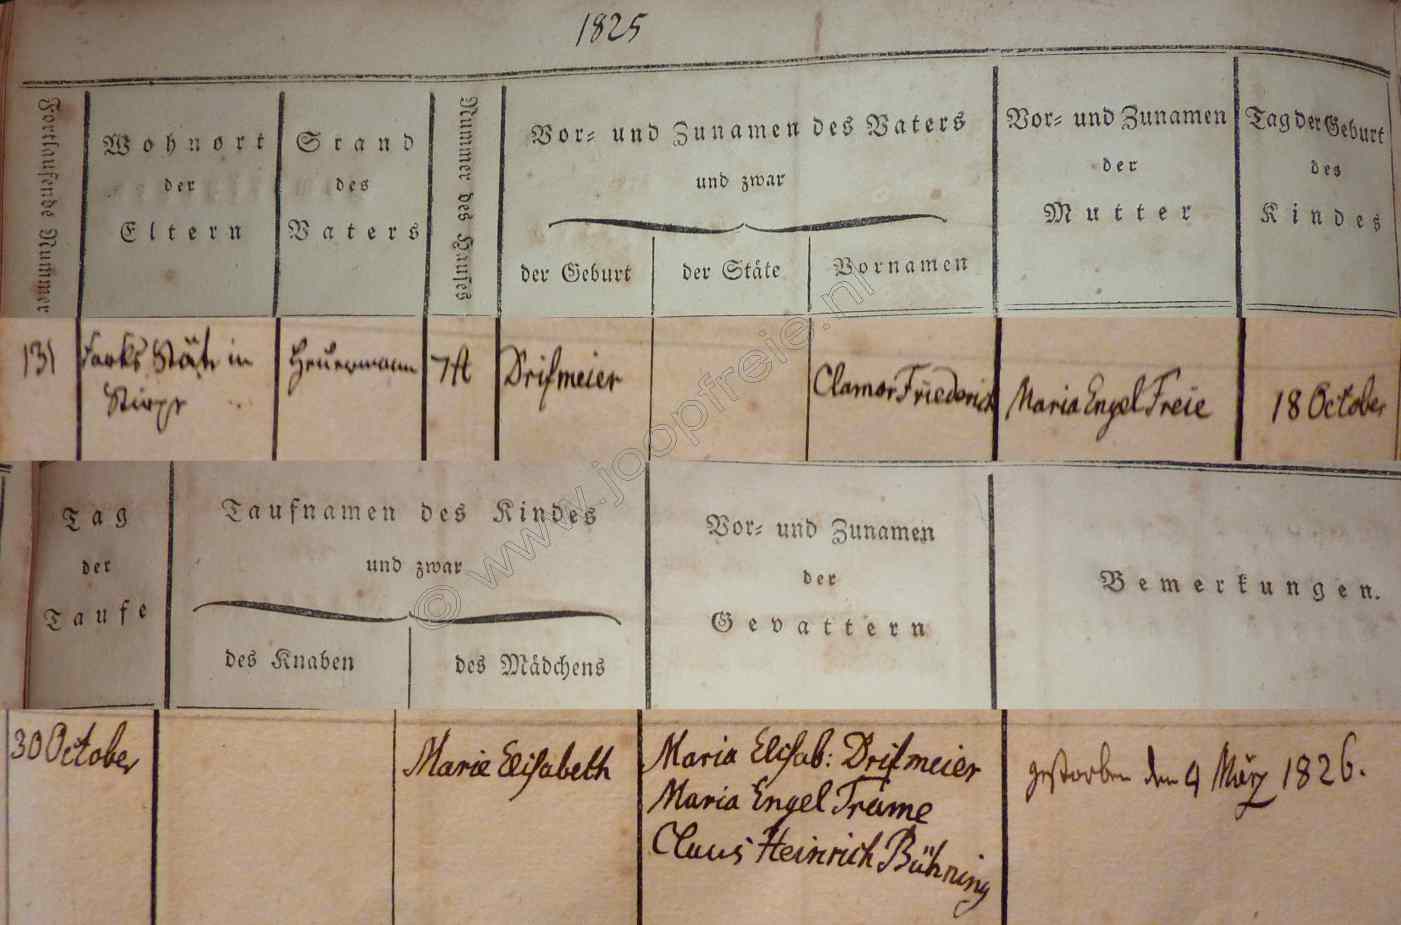 1825
Fortlaufende Nummer
Wohnort
der
Eltern
Stand
des
Vaters
Nummer des Hauses
Vor= und Zunamen des Vaters
und zwar
der Geburt
der Stäte
Vornamen
Vor= und Zunamen
der
Mutter
Tag der Geburt
des
Kindes
131
Stäte in
Stirpe
Heuermann
Drifmeier
Clamor Friederich
Maria Engel Freie
18 October
Tag
der
Taufe
Taufnamen des Kindes
und zwar
des Knaben
des Mädchens
Vor= und Zunamen
der
Gevattern
Bemerkungen.
30 October
Marie Elisabeth
Maria Elisab: Drifmeier
Maria Engel Frame
Claus Heinrich Bühning
gestorben den 4 März 1826.
© www.joopfreie.nl